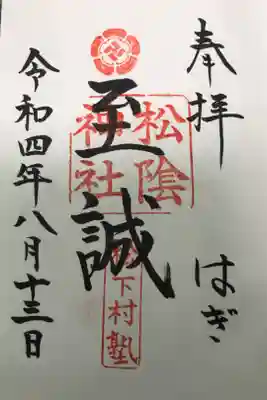 奉拝 はぎ
至誠
松陰神社
松下村塾
令和四年八月十三日